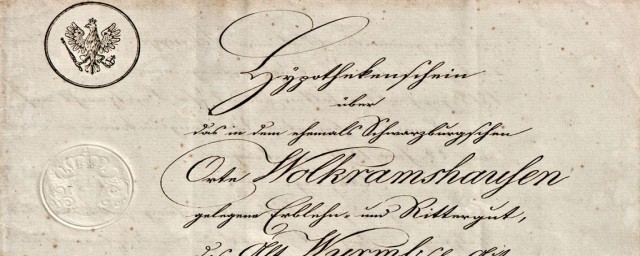 Hÿpothekenschein
über
das in dem ehemals Schwarzburgschen
Orte Wolkramshausen
gelegene Erblehn- und Rittergut,
das Alt